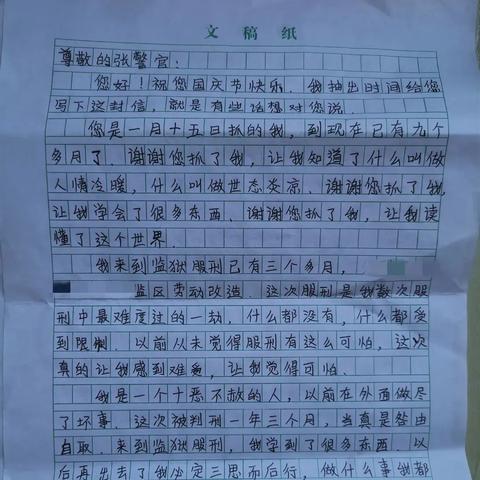 文稿纸
尊敬的张警官：
您好！祝您国庆节快乐。我抽出时间给您
写下这封信，就是有些话想对您说。
您是一月十五日抓的我，到现在已有九个
多月了、谢谢您抓了我，让我知道了什么叫做
人情冷暖，什么叫做世态炎凉、谢谢您抓了我，
让我学会了很多东西、谢谢您抓了我，让我读
懂了这个世界．
我来到监狱服刑已有三个多月，
监区劳动改造、这次服刑是我数次服
刑中最难度过的一劫，什么都没有，什么都受
到限制、以前从未觉得服刑有这么可怕，这次
真的让我感到难受，让我觉得可怕．
我是一个十恶不赦的人，以前在外面做尽
了坏事、这次被判刑一年三个月，当真是咎由
自取、来到监狱服刑，我学到了很多东西、以
后再出去了我必定三思而后行，做什么事我都